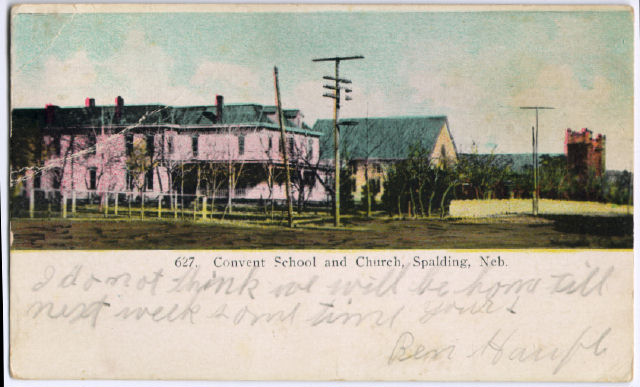 627. Convent School and Church, Spalding, Neb.
I do not think we will be hom till
next week some time yours
Ben Haupt